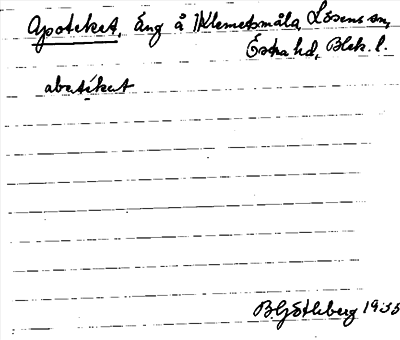 Apoteket, Äng å Klemetsmåla, Lösens sn,
Östra hd, Blek. l.
abetikut
B. Götlberg 1935